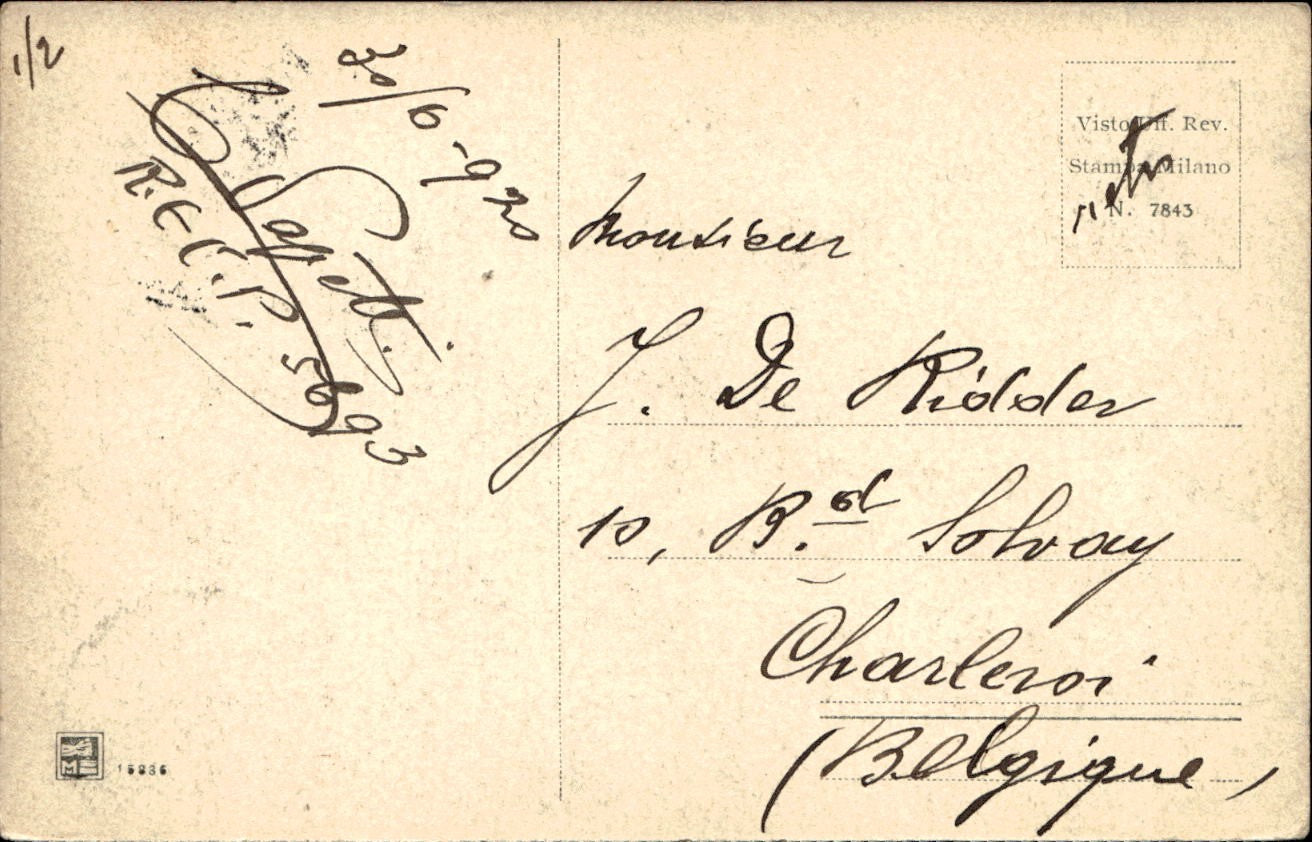 1/2
20/6-920
R.E.C.P. 5693
Visto Uff. Rev.
Stampa Milano
N. 7843
Monsieur
J. De Ridder
10, B.d Solvay
Charleroi
(Belgique)
M
15836